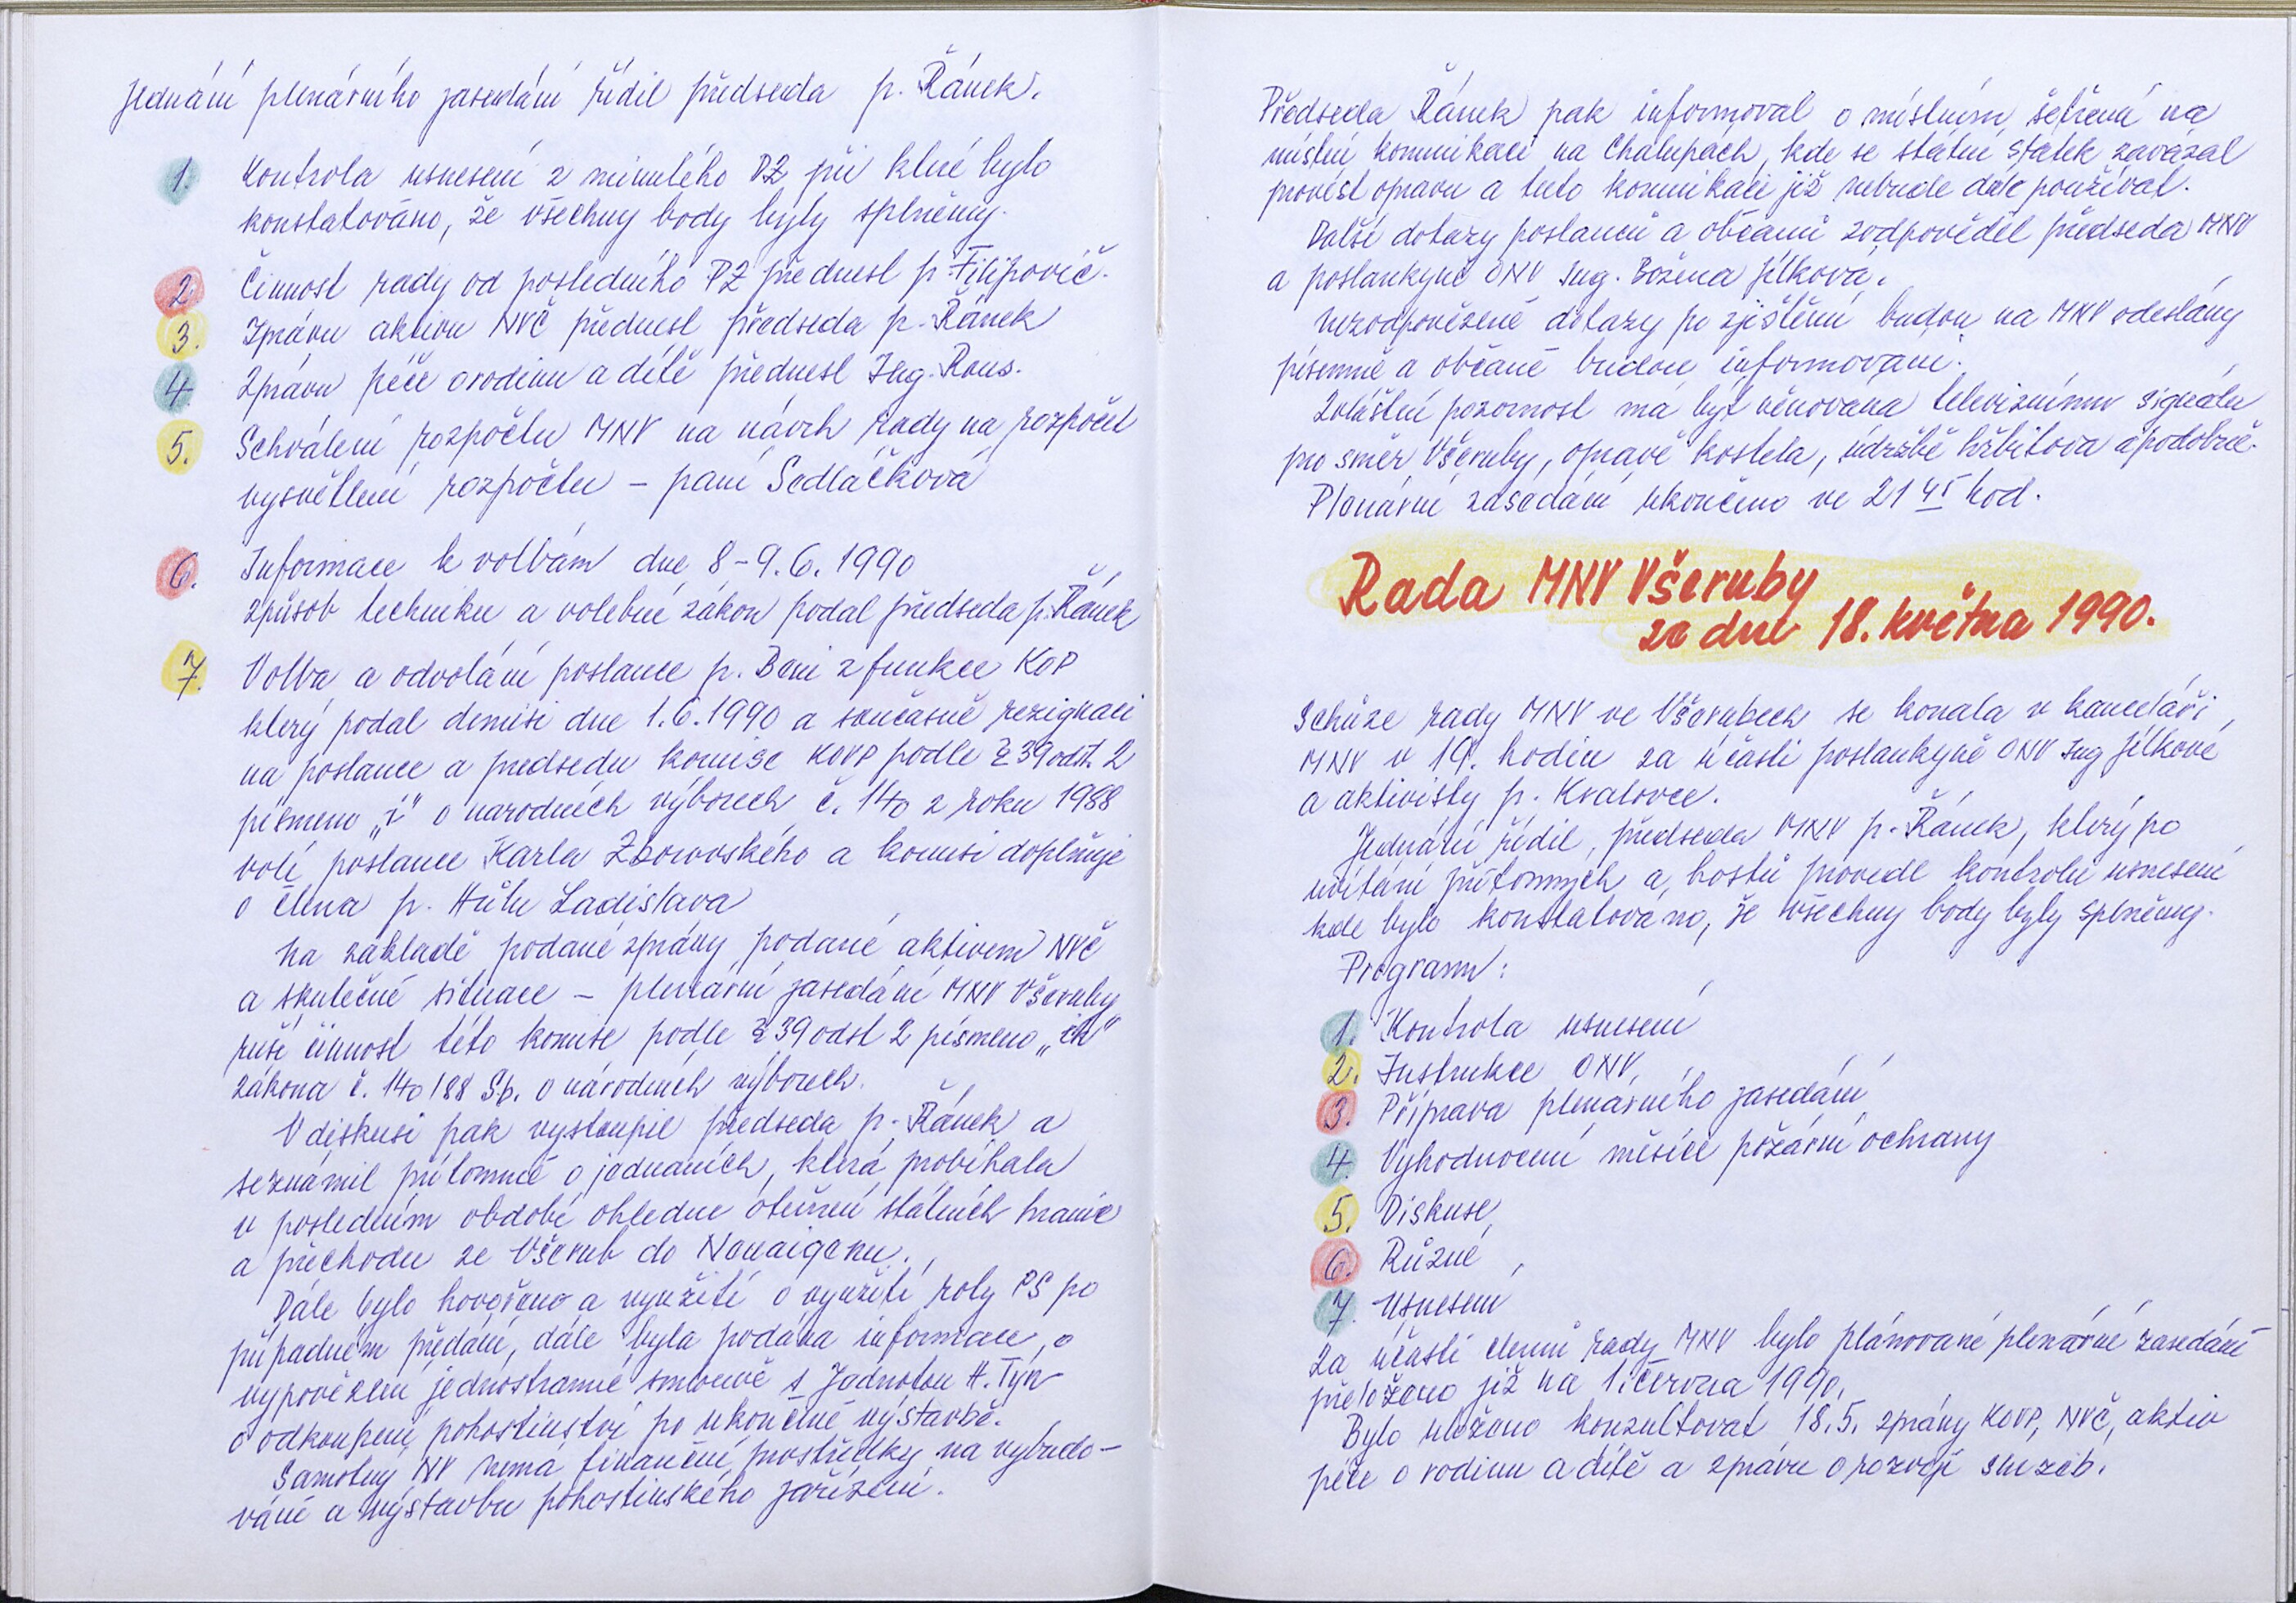 Jednání plenárního zasedání řídil předseda p. Řánek.
1. Kontrola usnesení z minulého PZ při které bylo
konstatováno, že všechny body byly splněny.
2. Činnost rady od posledního PZ přednesl p. Filipovič.
3. Zprávu aktivu NVČ přednesl předseda p. Řánek
4. Zprávu péče o rodinu a dítě přednesl Ing. Rous.
5. Schválení rozpočtu MNV na návrh rady na rozpočet
vysvětlení rozpočtu – paní Sedláčková
6. Informace k volbám dne 8-9.6.1990
způsob techniku a volební zákon podal předseda p. Řánek
7. Volba a odvolání poslance p. Beni z funkce KOP
který podal demisi dne 1.6.1990 a současně rezignaci
na poslance a předsedu komise KOVP podle § 39 odst. 2
písmeno „i" o národních výborech č. 140 z roku 1988
volí poslance Karla Zborovského a komisi doplňuje
o člena p. Hůlu Ladislava
Na základě podané zprávy, podané aktivem NVČ
a skutečné situace – plenární zasedání MNV Všeruby
ruší činnost této komise podle § 39 odst 2 písmeno „ch"
zákona č. 140/88 Sb. o národních výborech.
V diskusi pak vystoupil předseda p. Řánek a
seznámil přítomné o jednáních, která probíhala
v posledním období ohledne otevření státních hranic
a přechodu ze Všerub do Neuaigenu.
Dále bylo hovořeno a využití o využití roly PS po
případném předání, dále byla podána informace o
vypovězení jednostranné smlouvě s Jednotou H. Týn
o odkoupení pohostinství po ukončené výstavbě.
Samotný NV nemá finanční prostředky na vybudo-
vání a výstavbu pohostinského zařízení.
Předseda Řánek pak informoval o místním šetření na
místní komunikaci na Chalupách, kde se státní statek zavázal
provést opravu a tuto komunikaci již nebude dále používat.
Další dotazy poslanců a občanů zodpověděl předseda MNV
a poslankyně ONV Ing. Božena Jílková.
Nezodpovězené dotazy po zjištění budou na MNV odeslány
písemně a občané budou informováni.
Zvláštní pozornost má být věnována televiznímu signálu
pro směr Všeruby, opravě kostela, údržbě hřbitova apodobně.
Plenární zasedání ukončeno ve 21 45 hod.
Rada MNV Všeruby
ze dne 18. května 1990.
Schůze rady MNV ve Všerubech se konala v kanceláři
MNV v 19. hodin za účasti poslankyně ONV Ing Jílkové
a aktivisty p. Kralovce.
Jednání řídil, předseda MNV p. Řánek, který po
uvítání přítomných a hostů provedl kontrolu usnesení
kde bylo konstatováno, že všechny body byly splněny.
Program:
1. Kontrola usnesení
2. Instrukce ONV,
3. Příprava plenárního zasedání
4. Vyhodnocení měsíce požární ochrany
5. Diskuse
6. Různé
7. Usnesení
Za účasti členů rady MNV bylo plánované plenární zasedání
přeloženo již na 1. června 1990.
Bylo uloženo konzultovat 18.5. zprávy KOVP, NVČ, aktiv
péče o rodinu a dítě a zprávu o rozvoji služeb.